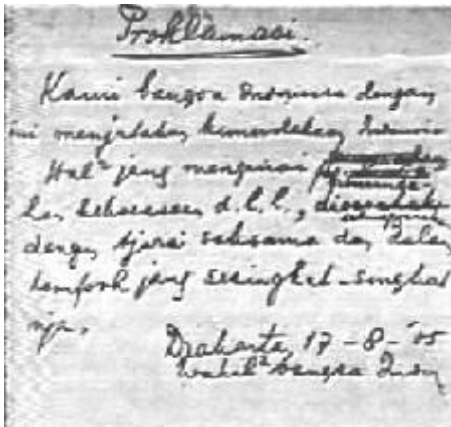 Proklamasi.
Kami bangsa Indonesia dengan
ini menjatakan kemerdekaan Indonesia
Hal² jang mengenai
han kekoeasaan d.l.l.,
dengan tjara saksama dan dalam
tempoh jang sesingkat-singkat
nja.
Djakarta, 17 - 8 - '05
Wakil² bangsa